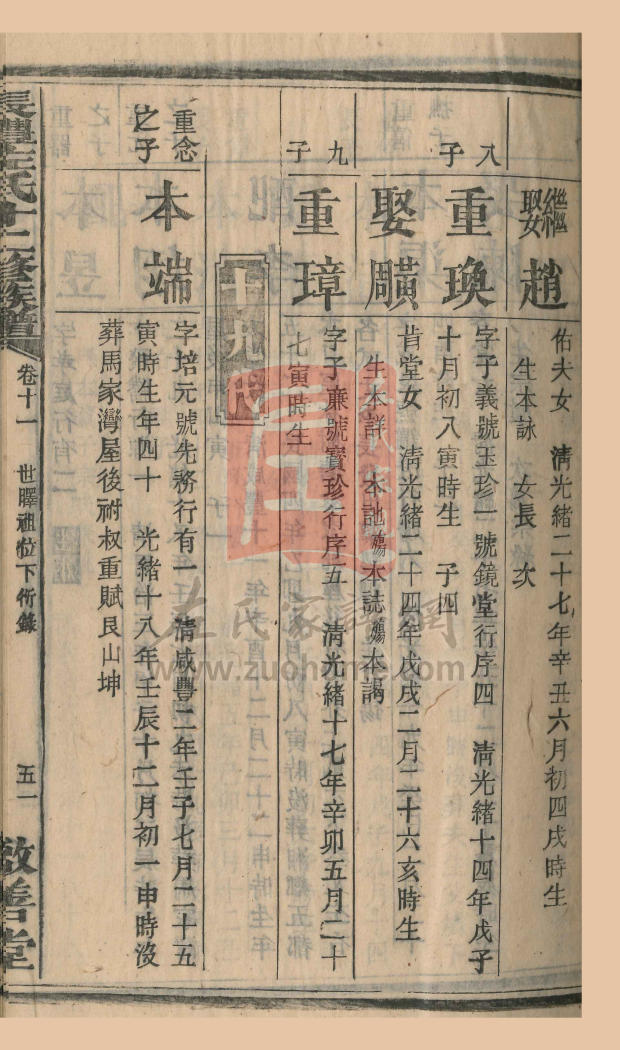 繼娶趙
佑夫女 清光緒二十七年辛丑六月初四戌時生
生本詠 女長 次
八子
重瑍
字子義號玉珍一號鏡堂行序四 清光緒十四年戊子
十月初入寅時生 子四
娶鄺
肯堂女 清光緒二十四年戊戌二月二十六亥時生
生本詳 本訑殤本誌殤本謁
九子
重璋
字子廉號寶珍行序五 清光緒十七年辛卯五月二十
七寅時生
十九代
重念之子
本端
字培元號先務行有一 清咸豐二年壬子七月二十五
寅時生年四十 光緒十八年壬辰十二月初一申時沒
葬馬家灣屋後祔叔重賦艮山坤
左氏十二修族譜
卷十一
世曎祖位下衍錄
五一
敦善堂
左氏家譜網
www.zuohome.com